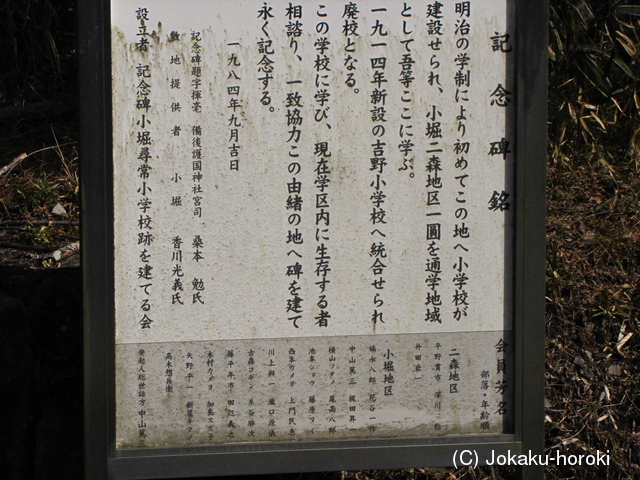 記念碑銘
明治の学制により初めてこの地へ小学校が
建設せられ、小堀二森地区一圓を通学地域
として吾等ここに学ぶ。
一九一四年新設の吉野小学校へ統合せられ
廃校となる。
この学校に学び、現在学区内に生存する者
相諮り、一致協力この由緒の地へ碑を建て
永く記念する。
一九八四年九月吉日
記念碑題字揮毫 備後護国神社宮司 桑本 勉氏
敷地提供者 小堀 香川光義氏
設立者 記念碑小堀尋常小学校跡を建てる会
会員芳名
部落・年齢順
二森地区
小堀地区
中山篤三 梶田昇一
池本ショウ 藤原マイ
藤平年市 田辺義之
高木惣兵衛
発起人総世話方 中山篤三
(C) Jokaku-horoki